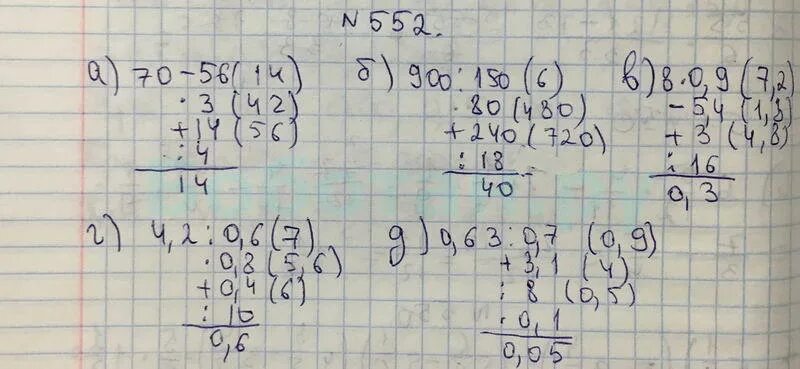 № 552.
а) 70 - 56 (14)
· 3 (42)
+ 14 (56)
: 4
14
б) 900 : 150 (6)
· 80 (480)
+ 240 (720)
: 18
40
в) 8 · 0,9 (7,2)
- 5,4 (1,8)
+ 3 (4,8)
: 16
0,3
г) 4,2 : 0,6 (7)
· 0,8 (5,6)
+ 0,4 (6)
: 10
0,6
д) 0,63 : 0,7 (0,9)
+ 3,1 (4)
: 8 (0,5)
· 0,1
0,05